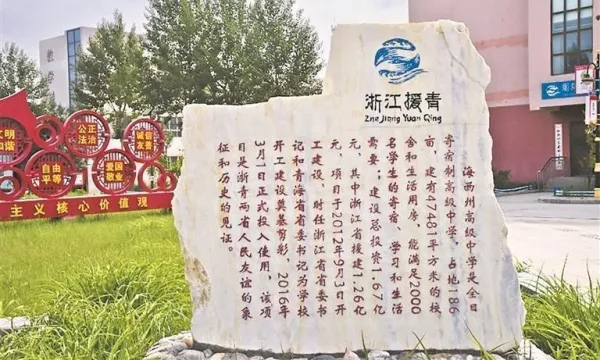 浙江援青
Zhe Jiang Yuan Qing
海西州高级中学是全日
寄宿制高级中学,占地186
亩,建有47481平方米的校
舍和生活用房,能满足2000
名学生的寄宿、学习和生活
需要;建设总投资1.67亿
元,其中浙江省援建1.26亿
元,项目于2012年9月3日开
工建设,时任浙江省省委书
记和青海省省委书记为学校
开工建设奠基剪彩,2016年
3月1日正式投入使用,该项
目是浙青两省人民友谊的象
征和历史的见证。
文明
和谐
公正
法治
诚信
友善
自由
平等
爱国
敬业
主义核心价值观